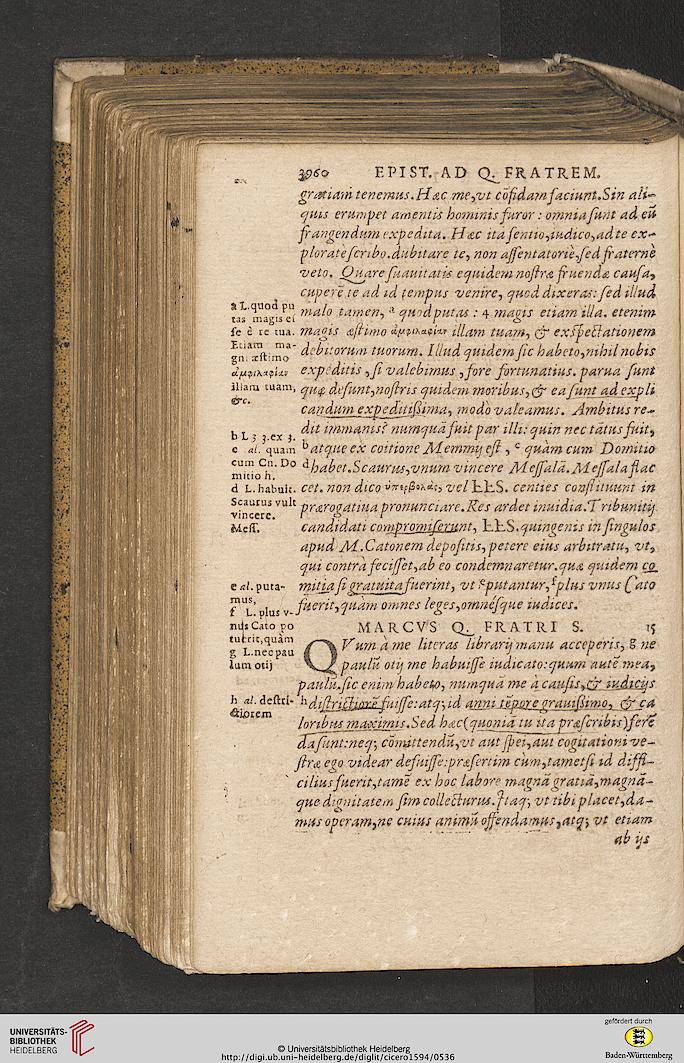 3960 EPIST. AD Q. FRATREM.
gratiam tenemus. Hæc me, vt cōfidam faciunt. Sin ali-
quis erumpet amentis hominis furor: omnia sunt ad eū
frangendum expedita. Hæc ita sentio, iudico, ad te ex-
ploratè scribo. dubitare te, non assentatoriè, sed fraternè
veto. Quare suauitatis equidem nostræ fruendæ causa,
cuperē te ad id tempus venire, quod dixeras: sed illud
malo tamen, ᵃ quod putas: 4 magis etiam illa. etenim
magis æstimo ἀμφιλαφίαν illam tuam, & exspectationem
debitorum tuorum. Illud quidem sic habeto, nihil nobis
expeditis, si valebimus, fore fortunatius. parua sunt
quæ desunt, nostris quidem moribus, & ea sunt ad expli
candum expeditißima, modò valeamus. Ambitus re-
dit immanis? numquā fuit par illi: quin nec tātus fuit,
ᵇ atque ex coitione Memmij est, ᶜ quàm cum Domitio
ᵈ habet. Scaurus, vnum vincere Messalā. Messala flac
cet. non dico ὑπερβολὰς, vel LLS. centies constituunt in
prærogatiua pronunciare. Res ardet inuidia. Tribunitij
candidati compromiserunt, LLS. quingenis in singulos
apud M. Catonem depositis, petere eius arbitratu, vt,
qui contrà fecisset, ab eo condemnaretur. quæ quidem co
mitia si gratuita fuerint, vt ᵉ putantur, ᶠ plus vnus Cato
fuerit, quàm omnes leges, omnésque iudices.
a L. quod pu
tas magis ei
se è re tua.
Etiam ma-
gni æstimo
ἀμφιλαφίαν
illam tuam,
&c.
b L 3 3. ex 3.
c al. quam
cum Cn. Do
mitio h.
d L. habuit.
Scaurus vult
vincere.
Mess.
e al. puta-
mus,
f L. plus v-
nus Cato po
tuerit, quàm
MARCVS Q. FRATRI S. 15
QVum à me literas librarij manu acceperis, ᵍ ne
paulū otij me habuisse iudicato: quum autē mea,
paulū. sic enim habeto, numquā me à causis, & iudicijs
ʰ districtiorē fuisse: atq; id anni tēpore grauißimo, & ca
loribus maximis. Sed hæc (quoniā tu ita præscribis) ferē
da sunt: neq; cōmittendū, vt aut spei, aut cogitationi ve-
stræ ego videar defuisse: præsertim cùm, tametsi id diffi-
cilius fuerit, tamē ex hoc labore magnā gratiā, magnā-
que dignitatem sim collecturus. Itaq; vt tibi placet, da-
mus operam, ne cuius animū offendamus, atq; vt etiam
ab ijs
g L. nec pau
lum otij
h al. destri-
ctiorem
UNIVERSITÄTS-
BIBLIOTHEK
HEIDELBERG
© Universitätsbibliothek Heidelberg
http://digi.ub.uni-heidelberg.de/diglit/cicero1594/0536
gefördert durch
Baden-Württemberg